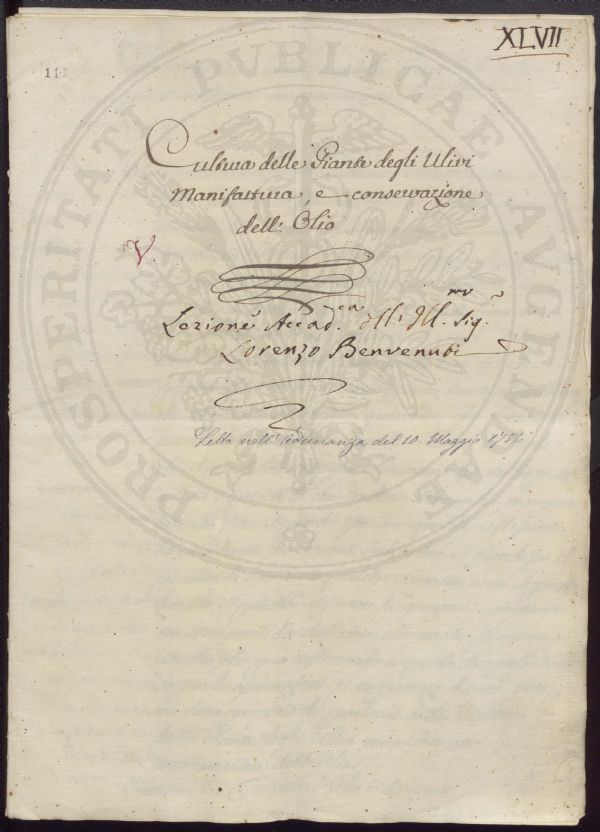 XLVII
111
1
Cultura delle Piante degli Ulivi
Manifattura, e conservazione
dell' Olio
V.
Lezione Accad.ca dell' Ill.mo Sig.
Lorenzo Benvenuti
Letta nell' Adunanza del 10. Maggio
PROSPERITATI PVBLICAE AVGENDAE